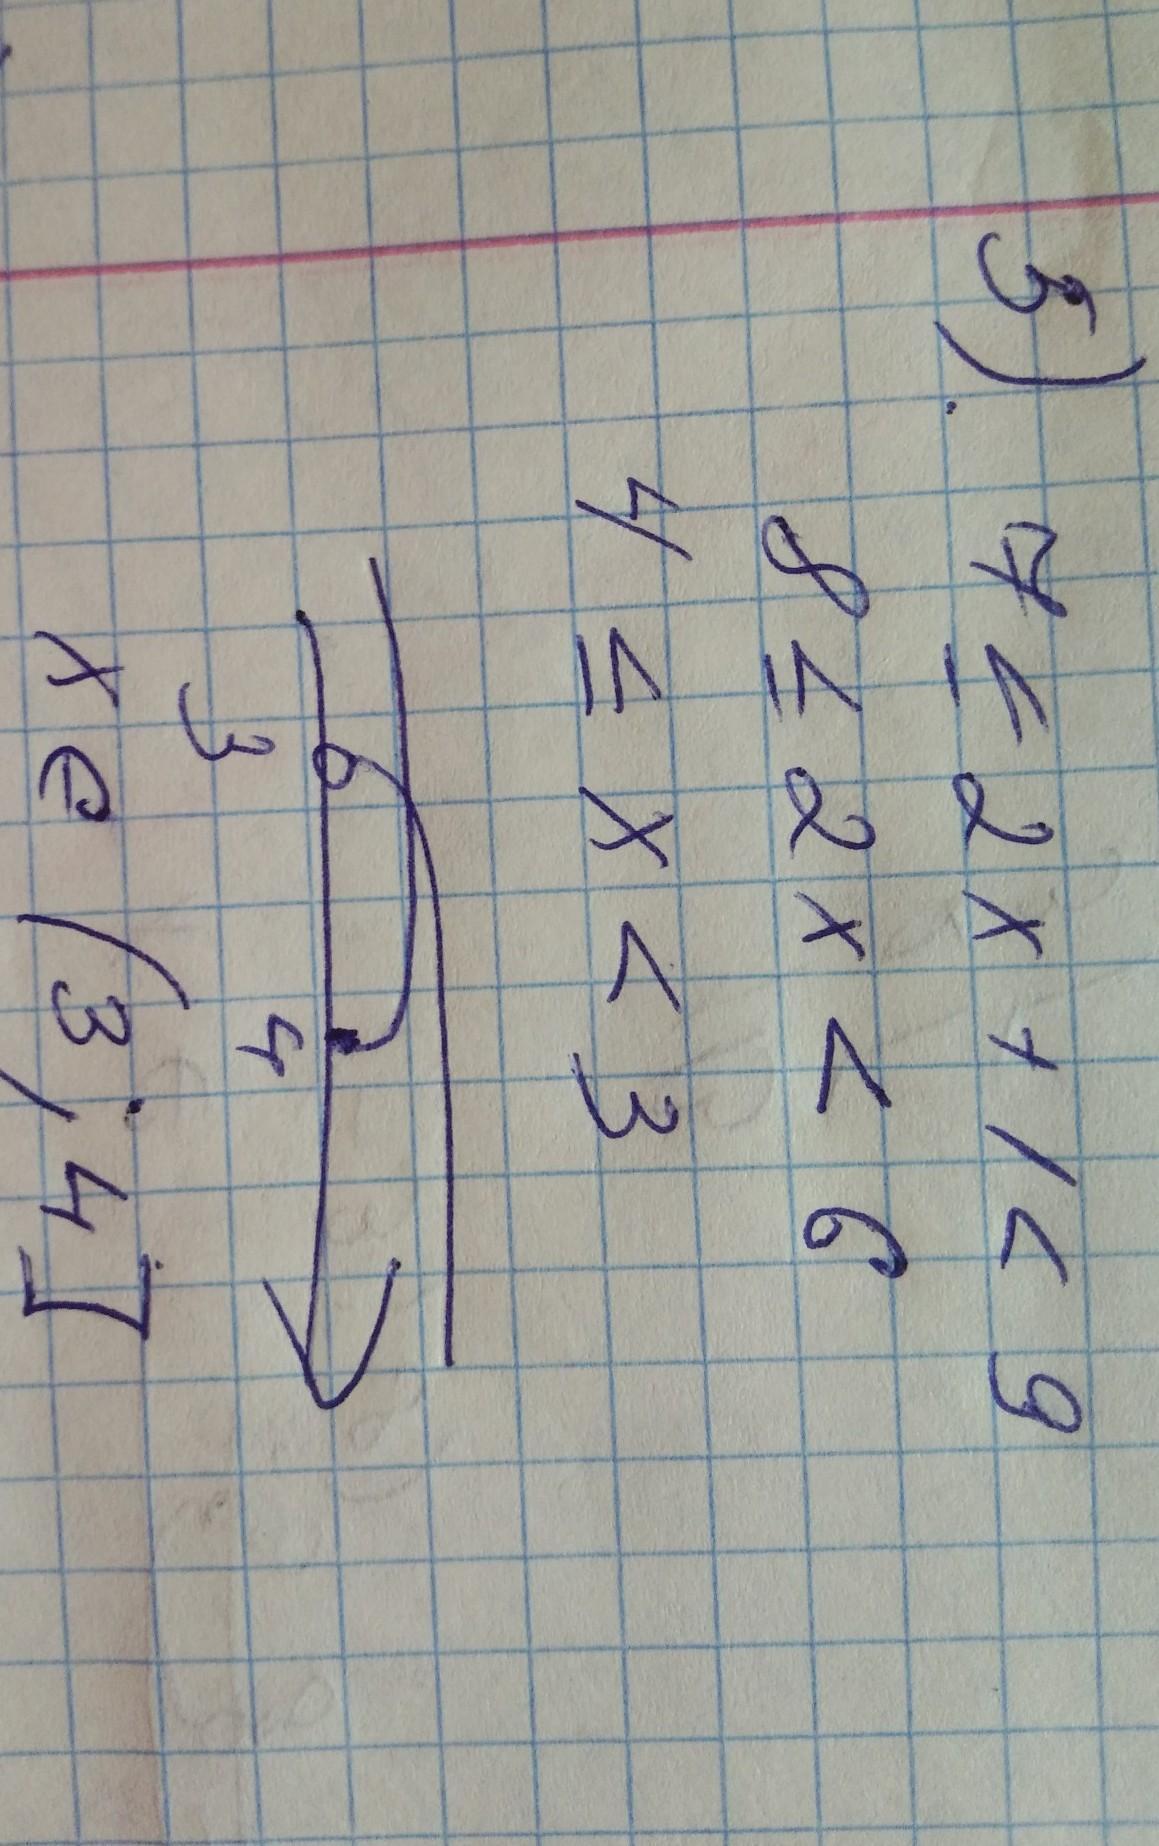 5). 7 ≤ 2x+1 < 9
8 ≤ 2x < 6
4 ≤ x < 3
3 4
x e (3; 4]